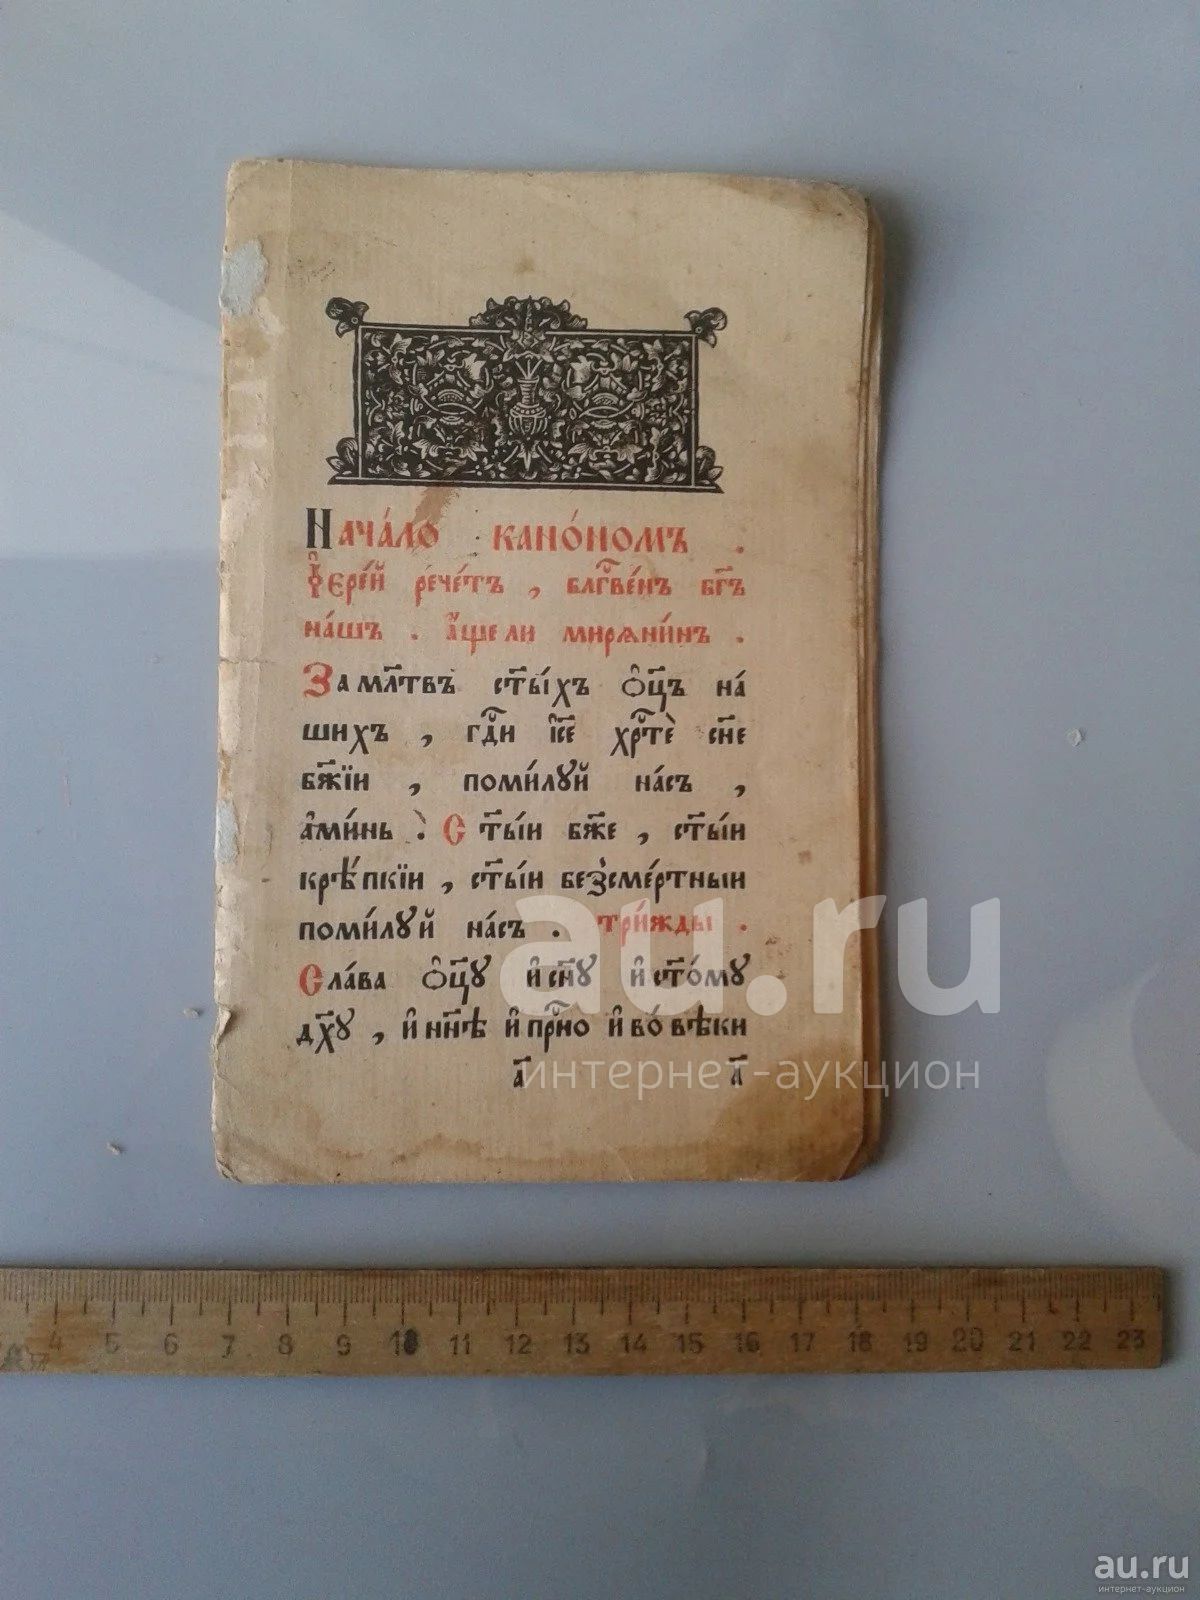 Нача́ло кано́номъ .
І҆ере́й рече́тъ , блгⷭ҇ве́нъ бг҃ъ
на́шъ . а҆́ще ли миряни́нъ .
За мл҃твъ ст҃ы́хъ ѻ҆ц҃ъ на́
шихъ , гдⷭ҇и і҆с҃е хрⷭ҇тѐ сн҃е
бж҃їи , поми́лꙋй на́съ ,
а҆ми́нь . Ст҃ы́и бж҃е , ст҃ы́и
крѣ́пкїи , ст҃ы́и безсме́ртныи
поми́лꙋй на́съ . три́жды .
Сла́ва ѻ҆ц҃ꙋ и҆ сн҃ꙋ и҆ ст҃о́мꙋ
дх҃ꙋ , и҆ нн҃ѣ и҆ прⷭ҇но и҆ во́ вѣки
а҃ а҃
au.ru
интернет-аукцион
4 5 6 7 8 9 10 11 12 13 14 15 16 17 18 19 20 21 22 23
au.ru
интернет-аукцион